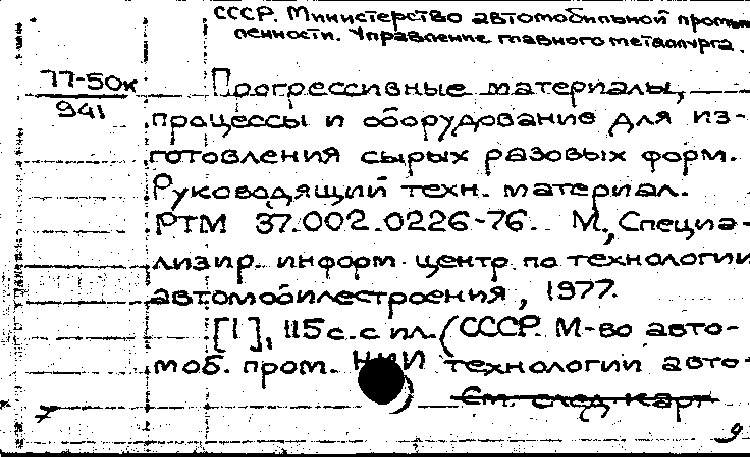 СССР. Министерство автомобильной промыш
ленности. Управление главного металлурга.
77-50к
941
Прогрессивные материалы,
процессы и оборудование для из-
готовления сырых разовых форм.
Руководящий техн. материал.
РТМ 37.002.0226-76. М., Специа-
лизир. информ. центр по технологии
автомобилестроения, 1977.
[1], 115с. с ил. (СССР. М-во авто-
моб. пром. НИИ технологии авто-
)
См. след. карт
7
9